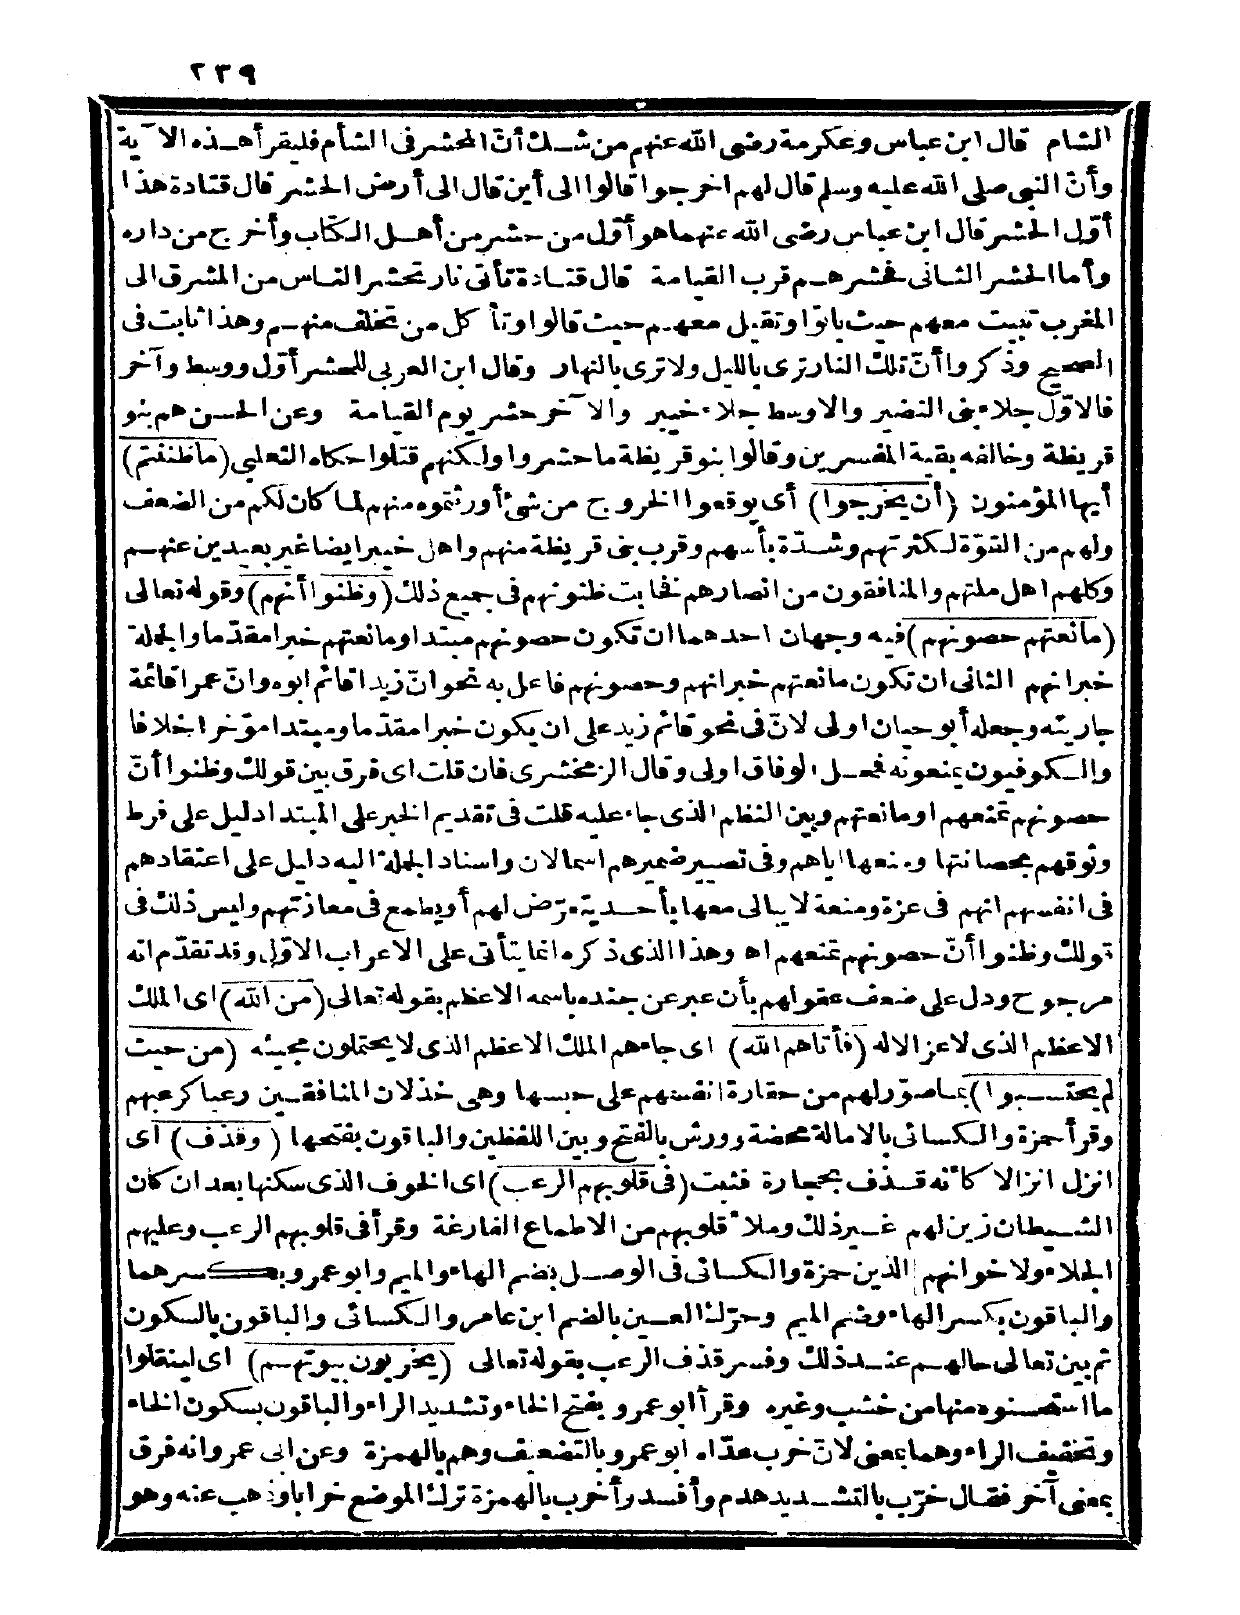 ٢٣٩
الشام قال ابن عباس وعكرمة رضى الله عنهم من شك أنّ المحشر فى الشأم فليقرأ هذه الاآية
وأنّ النبى صلى الله عليه وسلم قال لهم اخرجوا قالوا الى أين قال الى أرض الحشر قال قتادة هذا
أوّل الحشر قال ابن عباس رضى الله عنهما هو أوّل من حشر من أهل الكتاب وأخرج من داره
وأما الحشر الثانى فحشرهم قرب القيامة قال قتادة تأتى نار تحشر الناس من المشرق الى
المغرب تبيت معهم حيث باتوا وتقيل معهم حيث قالوا وتأكل من تخلف منهم وهذا ثابت فى
الصحيح وذكروا أنّ تلك النار ترى بالليل ولا ترى بالنهار وقال ابن العربى للحشر أوّل ووسط وآخر
فالاوّل جلاء بنى النضير والاوسط جلاء خيبر والاآخر حشر يوم القيامة وعن الحسن هم بنو
قريظة وخالفه بقية المفسرين وقالوا بنو قريظة ما حشروا ولكنهم قتلوا حكاه الثعلبى (ما ظننتم)
أيها المؤمنون (أن يخرجوا) أى يوقعوا الخروج من شئ أورثتموه منهم لما كان لكم من الضعف
ولهم من القوّة لكثرتهم وشدّة بأسهم وقرب بنى قريظة منهم واهل خيبر ايضا غير بعيدين عنهم
وكلهم اهل ملتهم والمنافقون من انصارهم فخابت ظنونهم فى جميع ذلك (وظنوا أنهم) وقوله تعالى
(مانعتهم حصونهم) فيه وجهان احدهما ان تكون حصونهم مبتدا ومانعتهم خبرا مقدّما والجملة
خبر انهم الثانى ان تكون مانعتهم خبر انهم وحصونهم فاعل به نحو انّ زيدا قائم ابوه وانّ عمرا قائمة
جاريته وجعله أبو حيان اولى لانّ فى نحو قائم زيد على ان يكون خبرا مقدّما ومبتدا مؤخرا خلافا
والكوفيون يمنعونه فمحل الوفاق اولى وقال الزمخشرى فان قلت اى فرق بين قولك وظنوا أنّ
حصونهم تمنعهم او مانعتهم وبين النظم الذى جاء عليه قلت فى تقديم الخبر على المبتدا دليل على فرط
وثوقهم بحصانتها ومنعها اياهم وفى تصيير ضميرهم اسما لان واسناد الجملة اليه دليل على اعتقادهم
فى انفسهم انهم فى عزة ومنعة لا يبالى معها بأحد يتعرّض لهم أو يطمع فى معازتهم وليس ذلك فى
قولك وظنوا أنّ حصونهم تمنعهم اه وهذا الذى ذكره انما يتأتى على الاعراب الاوّل وقد تقدّم انه
مرجوح ودل على ضعف عقولهم بأن عبر عن جنده باسمه الاعظم بقوله تعالى (من الله) اى الملك
الاعظم الذى لا عز الاله (فأتاهم الله) اى جاءهم الملك الاعظم الذى لا يحتملون مجيئه (من حيث
لم يحتسبوا) بما صوّر لهم من حقارة انفسهم على حبسها وهى خذلان المنافقين رعبا كرعبهم
وقرأ حمزة والكسائى بالامالة محضة وورش بالفتح وبين اللفظين والباقون بفتحها (وقذف) اى
انزل انزالا كأنه قذف بحجارة فثبت (فى قلوبهم الرعب) اى الخوف الذى سكنها بعد ان كان
الشيطان زين لهم غير ذلك وملأ قلوبهم من الاطماع الفارغة وقرأ فى قلوبهم الرعب وعليهم
الجلاء ولاخوانهم الذين حمزة والكسائى فى الوصل بضم الهاء والميم وابو عمرو بكسرهما
والباقون بكسر الهاء وضم الميم وحرّك العين بالضم ابن عامر والكسائى والباقون بالسكون
ثم بين تعالى حالهم عند ذلك وفسر قذف الرعب بقوله تعالى (يخربون بيوتهم) اى لينقلوا
ما استحسنوه منها من خشب وغيره وقرأ ابو عمرو بفتح الخاء وتشديد الراء والباقون بسكون الخاء
وتخفيف الراء وهما بمعنى لانّ خرب عدّاه ابو عمرو بالتضعيف وهم بالهمزة وعن ابى عمرو انه فرق
بمعنى آخر فقال خرّب بالتشديد هدم وأفسد وأخرب بالهمزة ترك الموضع خرابا وذهب عنه وهو